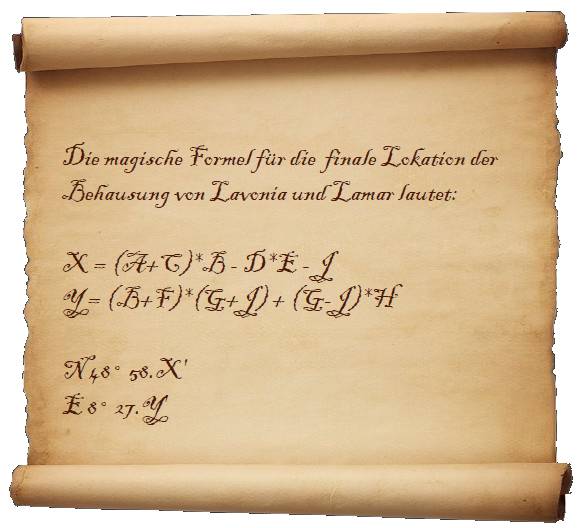 Die magische Formel für die finale Lokation der
Behausung von Lavonia und Lamar lautet:
X = (A+C)*B - D*E - J
Y = (B+F)*(G+J) + (G-J)*H
N 48° 58.X'
E 8° 27.Y